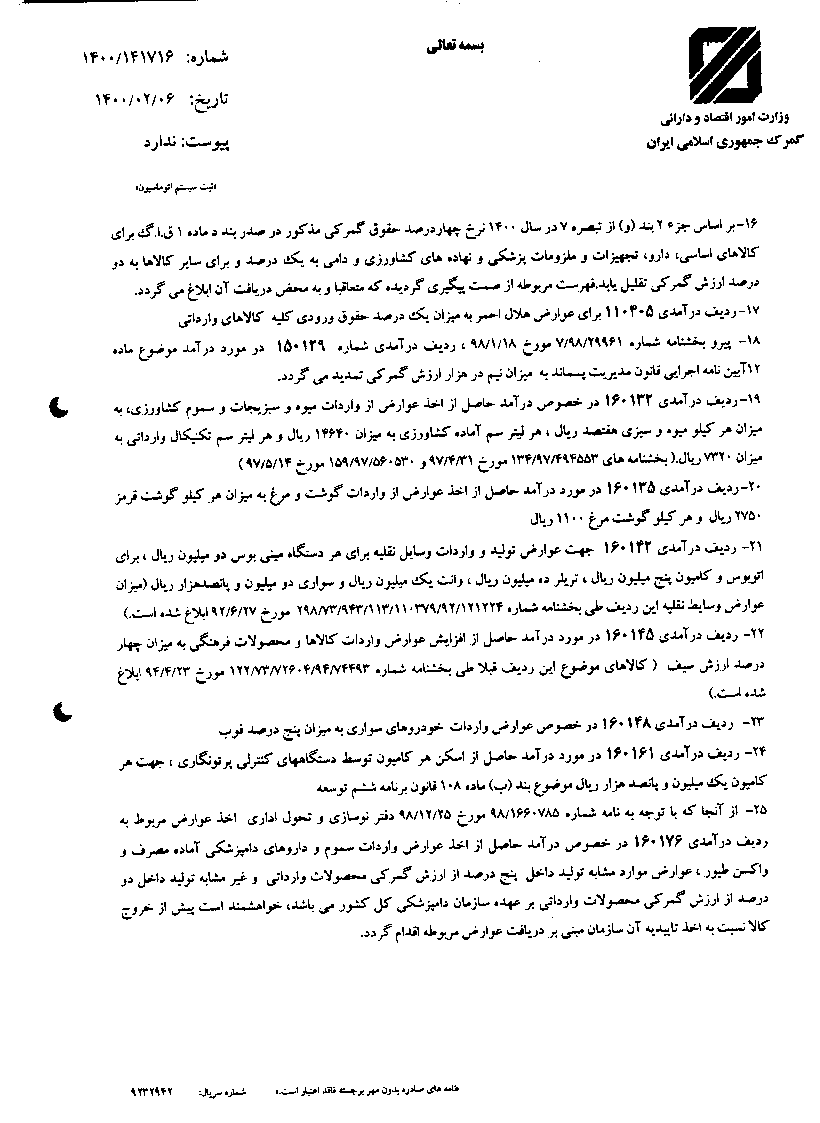 بسمه تعالی
وزارت امور اقتصاد و دارائی
گمرک جمهوری اسلامی ایران
شماره: ۱۴۰۰/۱۴۱۷۱۶
تاریخ: ۱۴۰۰/۰۲/۰۶
پیوست: ندارد
«ثبت سیستم اتوماسیون»
۱۶-بر اساس جزء ۲ بند (و) از تبصره ۷ در سال ۱۴۰۰ نرخ چهاردرصد حقوق گمرکی مذکور در صدر بند د ماده ۱ ق.ا.گ برای
کالاهای اساسی، دارو، تجهیزات و ملزومات پزشکی و نهاده های کشاورزی و دامی به یک درصد و برای سایر کالاها به دو
درصد ارزش گمرکی تقلیل یابد.فهرست مربوطه از صمت پیگیری گردیده که متعاقبا و به محض دریافت آن ابلاغ می گردد.
۱۷-ردیف درآمدی ۱۱۰۴۰۵ برای عوارض هلال احمر به میزان یک درصد حقوق ورودی کلیه کالاهای وارداتی
۱۸- پیرو بخشنامه شماره ۷/۹۸/۲۹۹۶۱ مورخ ۹۸/۱/۱۸ ، ردیف درآمدی شماره ۱۵۰۱۲۹ در مورد درآمد موضوع ماده
۱۲آیین نامه اجرایی قانون مدیریت پسماند به میزان نیم در هزار ارزش گمرکی تمدید می گردد.
۱۹-ردیف درآمدی ۱۶۰۱۳۲ در خصوص درآمد حاصل از اخذ عوارض از واردات میوه و سبزیجات و سموم کشاورزی، به
میزان هر کیلو میوه و سبزی هفتصد ریال ، هر لیتر سم آماده کشاورزی به میزان ۱۴۶۴۰ ریال و هر لیتر سم تکنیکال وارداتی به
میزان ۷۳۲۰ ریال.( بخشنامه های ۱۳۴/۹۷/۴۹۴۵۵۳ مورخ ۹۷/۴/۳۱ و ۱۵۹/۹۷/۵۶۰۵۳۰ مورخ ۹۷/۵/۱۴ )
۲۰-ردیف درآمدی ۱۶۰۱۳۵ در مورد درآمد حاصل از اخذ عوارض از واردات گوشت و مرغ به میزان هر کیلو گوشت قرمز
۲۷۵۰ ریال و هر کیلو گوشت مرغ ۱۱۰۰ ریال
۲۱- ردیف درآمدی ۱۶۰۱۴۲ جهت عوارض تولید و واردات وسایل نقلیه برای هر دستگاه مینی بوس دو میلیون ریال ، برای
اتوبوس و کامیون پنج میلیون ریال ، تریلر ده میلیون ریال ، وانت یک میلیون ریال و سواری دو میلیون و پانصدهزار ریال (میزان
عوارض وسایط نقلیه این ردیف طی بخشنامه شماره ۲۹۸/۷۳/۹۴۳/۱۱۳/۱۱۰۳۷۹/۹۲/۱۲۱۲۲۴ مورخ ۹۲/۶/۲۷ ابلاغ شده است.)
۲۲- ردیف درآمدی ۱۶۰۱۴۵ در مورد درآمد حاصل از افزایش عوارض واردات کالاها و محصولات فرهنگی به میزان چهار
درصد ارزش سیف ( کالاهای موضوع این ردیف قبلا طی بخشنامه شماره ۱۲۲/۷۳/۷۲۶۰۴/۹۴/۷۴۴۹۳ مورخ ۹۴/۴/۲۳ ابلاغ
شده است.)
۲۳- ردیف درآمدی ۱۶۰۱۴۸ در خصوص عوارض واردات خودروهای سواری به میزان پنج درصد فوب
۲۴- ردیف درآمدی ۱۶۰۱۶۱ در مورد درآمد حاصل از اسکن هر کامیون توسط دستگاههای کنترلی پرتونگاری ، جهت هر
کامیون یک میلیون و پانصد هزار ریال موضوع بند (ب) ماده ۱۰۸ قانون برنامه ششم توسعه
۲۵- از آنجا که با توجه به نامه شماره ۹۸/۱۶۶۰۷۸۵ مورخ ۹۸/۱۲/۲۵ دفتر نوسازی و تحول اداری اخذ عوارض مربوط به
ردیف درآمدی ۱۶۰۱۷۶ در خصوص درآمد حاصل از اخذ عوارض واردات سموم و داروهای دامپزشکی آماده مصرف و
واکسن طیور ، عوارض موارد مشابه تولید داخل پنج درصد از ارزش گمرکی محصولات وارداتی و غیر مشابه تولید داخل دو
درصد از ارزش گمرکی محصولات وارداتی بر عهده سازمان دامپزشکی کل کشور می باشد، خواهشمند است پیش از خروج
کالا نسبت به اخذ تاییدیه آن سازمان مبنی بر دریافت عوارض مربوطه اقدام گردد.
«نامه های صادره بدون مهر برجسته فاقد اعتبار است.» شماره سریال: ۹۲۳۲۹۴۲